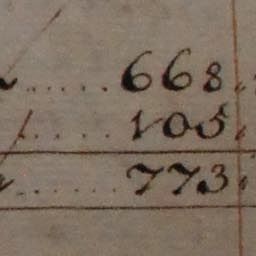 ..... 668.
..... 105.
...... 773.